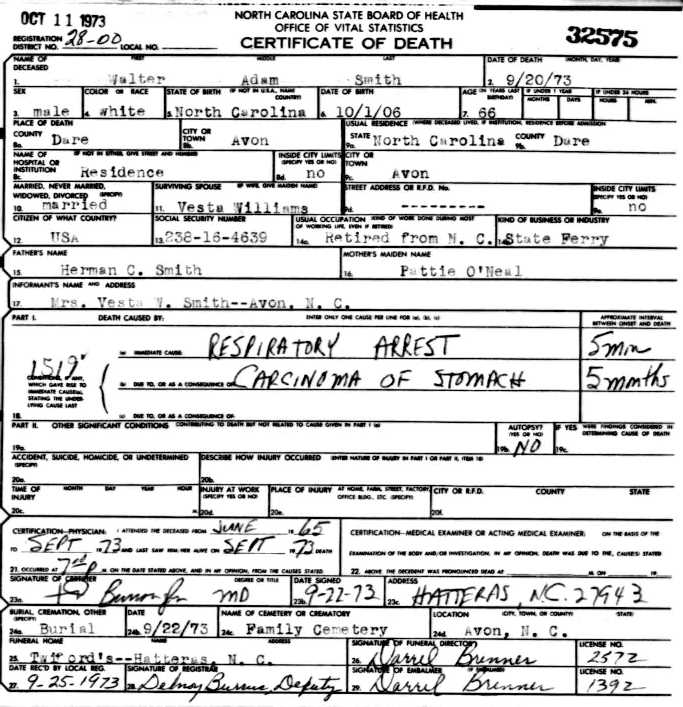 OCT 11 1973
NORTH CAROLINA STATE BOARD OF HEALTH
OFFICE OF VITAL STATISTICS
CERTIFICATE OF DEATH
32575
REGISTRATION DISTRICT NO. 28-00 LOCAL NO.
NAME OF DECEASED FIRST MIDDLE LAST DATE OF DEATH (MONTH, DAY, YEAR)
1. Walter Adam Smith 2. 9/20/73
SEX COLOR OR RACE STATE OF BIRTH (IF NOT IN U.S.A., NAME COUNTRY) DATE OF BIRTH AGE (IN YEARS LAST BIRTHDAY) IF UNDER 1 YEAR MONTHS DAYS IF UNDER 24 HOURS HOURS MIN.
3. male 4. white 5. North Carolina 6. 10/1/06 7. 66
PLACE OF DEATH USUAL RESIDENCE (WHERE DECEASED LIVED, IF INSTITUTION, RESIDENCE BEFORE ADMISSION
COUNTY Dare CITY OR TOWN Avon STATE North Carolina COUNTY Dare
8a. 8b. 9a. 9b.
NAME OF HOSPITAL OR INSTITUTION (IF NOT IN EITHER, GIVE STREET AND NUMBER) INSIDE CITY LIMITS (SPECIFY YES OR NO) CITY OR TOWN
8c. Residence 8d. no 9c. Avon
MARRIED, NEVER MARRIED, WIDOWED, DIVORCED (SPECIFY) SURVIVING SPOUSE (IF WIFE, GIVE MAIDEN NAME) STREET ADDRESS OR R.F.D. No. INSIDE CITY LIMITS (SPECIFY YES OR NO)
10. married 11. Vesta Williams 9d. --------- 9e. no
CITIZEN OF WHAT COUNTRY? SOCIAL SECURITY NUMBER USUAL OCCUPATION (KIND OF WORK DONE DURING MOST OF WORKING LIFE, EVEN IF RETIRED) KIND OF BUSINESS OR INDUSTRY
12. USA 13. 238-16-4639 14a. Retired from N. C. State Ferry
FATHER'S NAME MOTHER'S MAIDEN NAME
15. Herman C. Smith 16. Pattie O'Neal
INFORMANT'S NAME AND ADDRESS
17. Mrs. Vesta W. Smith--Avon, N. C.
PART I. DEATH CAUSED BY: ENTER ONLY ONE CAUSE PER LINE FOR (a), (b), (c) APPROXIMATE INTERVAL BETWEEN ONSET AND DEATH
(a) IMMEDIATE CAUSE: RESPIRATORY ARREST 5 min
1519
CONDITIONS, IF ANY, WHICH GAVE RISE TO IMMEDIATE CAUSE(a), STATING THE UNDERLYING CAUSE LAST
(b) DUE TO, OR AS A CONSEQUENCE OF: CARCINOMA OF STOMACH 5 months
18. (c) DUE TO, OR AS A CONSEQUENCE OF:
PART II. OTHER SIGNIFICANT CONDITIONS CONTRIBUTING TO DEATH BUT NOT RELATED TO CAUSE GIVEN IN PART I (a) AUTOPSY? (YES OR NO) IF YES WERE FINDINGS CONSIDERED IN DETERMINING CAUSE OF DEATH
19a. 19b. NO 19c.
ACCIDENT, SUICIDE, HOMICIDE, OR UNDETERMINED (SPECIFY) DESCRIBE HOW INJURY OCCURRED (ENTER NATURE OF INJURY IN PART I OR PART II, ITEM 18)
20a. 20b.
TIME OF INJURY MONTH DAY YEAR HOUR INJURY AT WORK (SPECIFY YES OR NO) PLACE OF INJURY AT HOME, FARM, STREET, FACTORY, OFFICE BLDG., ETC. (SPECIFY) CITY OR R.F.D. COUNTY STATE
20c. M 20d. 20e. 20f.
CERTIFICATION—PHYSICIAN: I ATTENDED THE DECEASED FROM JUNE 1965
TO SEPT 1973 AND LAST SAW HIM/HER ALIVE ON SEPT 1973 DEATH
21. OCCURRED AT M. ON THE DATE STATED ABOVE, AND IN MY OPINION, FROM THE CAUSES STATED.
CERTIFICATION—MEDICAL EXAMINER OR ACTING MEDICAL EXAMINER: ON THE BASIS OF THE
EXAMINATION OF THE BODY AND/OR INVESTIGATION, IN MY OPINION, DEATH WAS DUE TO THE, CAUSE(S) STATED
22. ABOVE THE DECEDENT WAS PRONOUNCED DEAD AT M. ON 19
SIGNATURE OF CERTIFIER DEGREE OR TITLE DATE SIGNED ADDRESS
23a. MD 23b. 9-22-73 23c. HATTERAS, N.C. 27943
BURIAL, CREMATION, OTHER (SPECIFY) DATE NAME OF CEMETERY OR CREMATORY LOCATION (CITY, TOWN, OR COUNTY) (STATE)
24a. Burial 24b. 9/22/73 24c. Family Cemetery 24d. Avon, N. C.
FUNERAL HOME NAME ADDRESS SIGNATURE OF FUNERAL DIRECTOR LICENSE NO.
25. Twiford's--Hatteras, N. C. 26. Darrel Brenner 2572
DATE REC'D BY LOCAL REG. SIGNATURE OF REGISTRAR SIGNATURE OF EMBALMER LICENSE NO.
27. 9-25-1973 28. Deputy 29. Darrel Brenner 1392